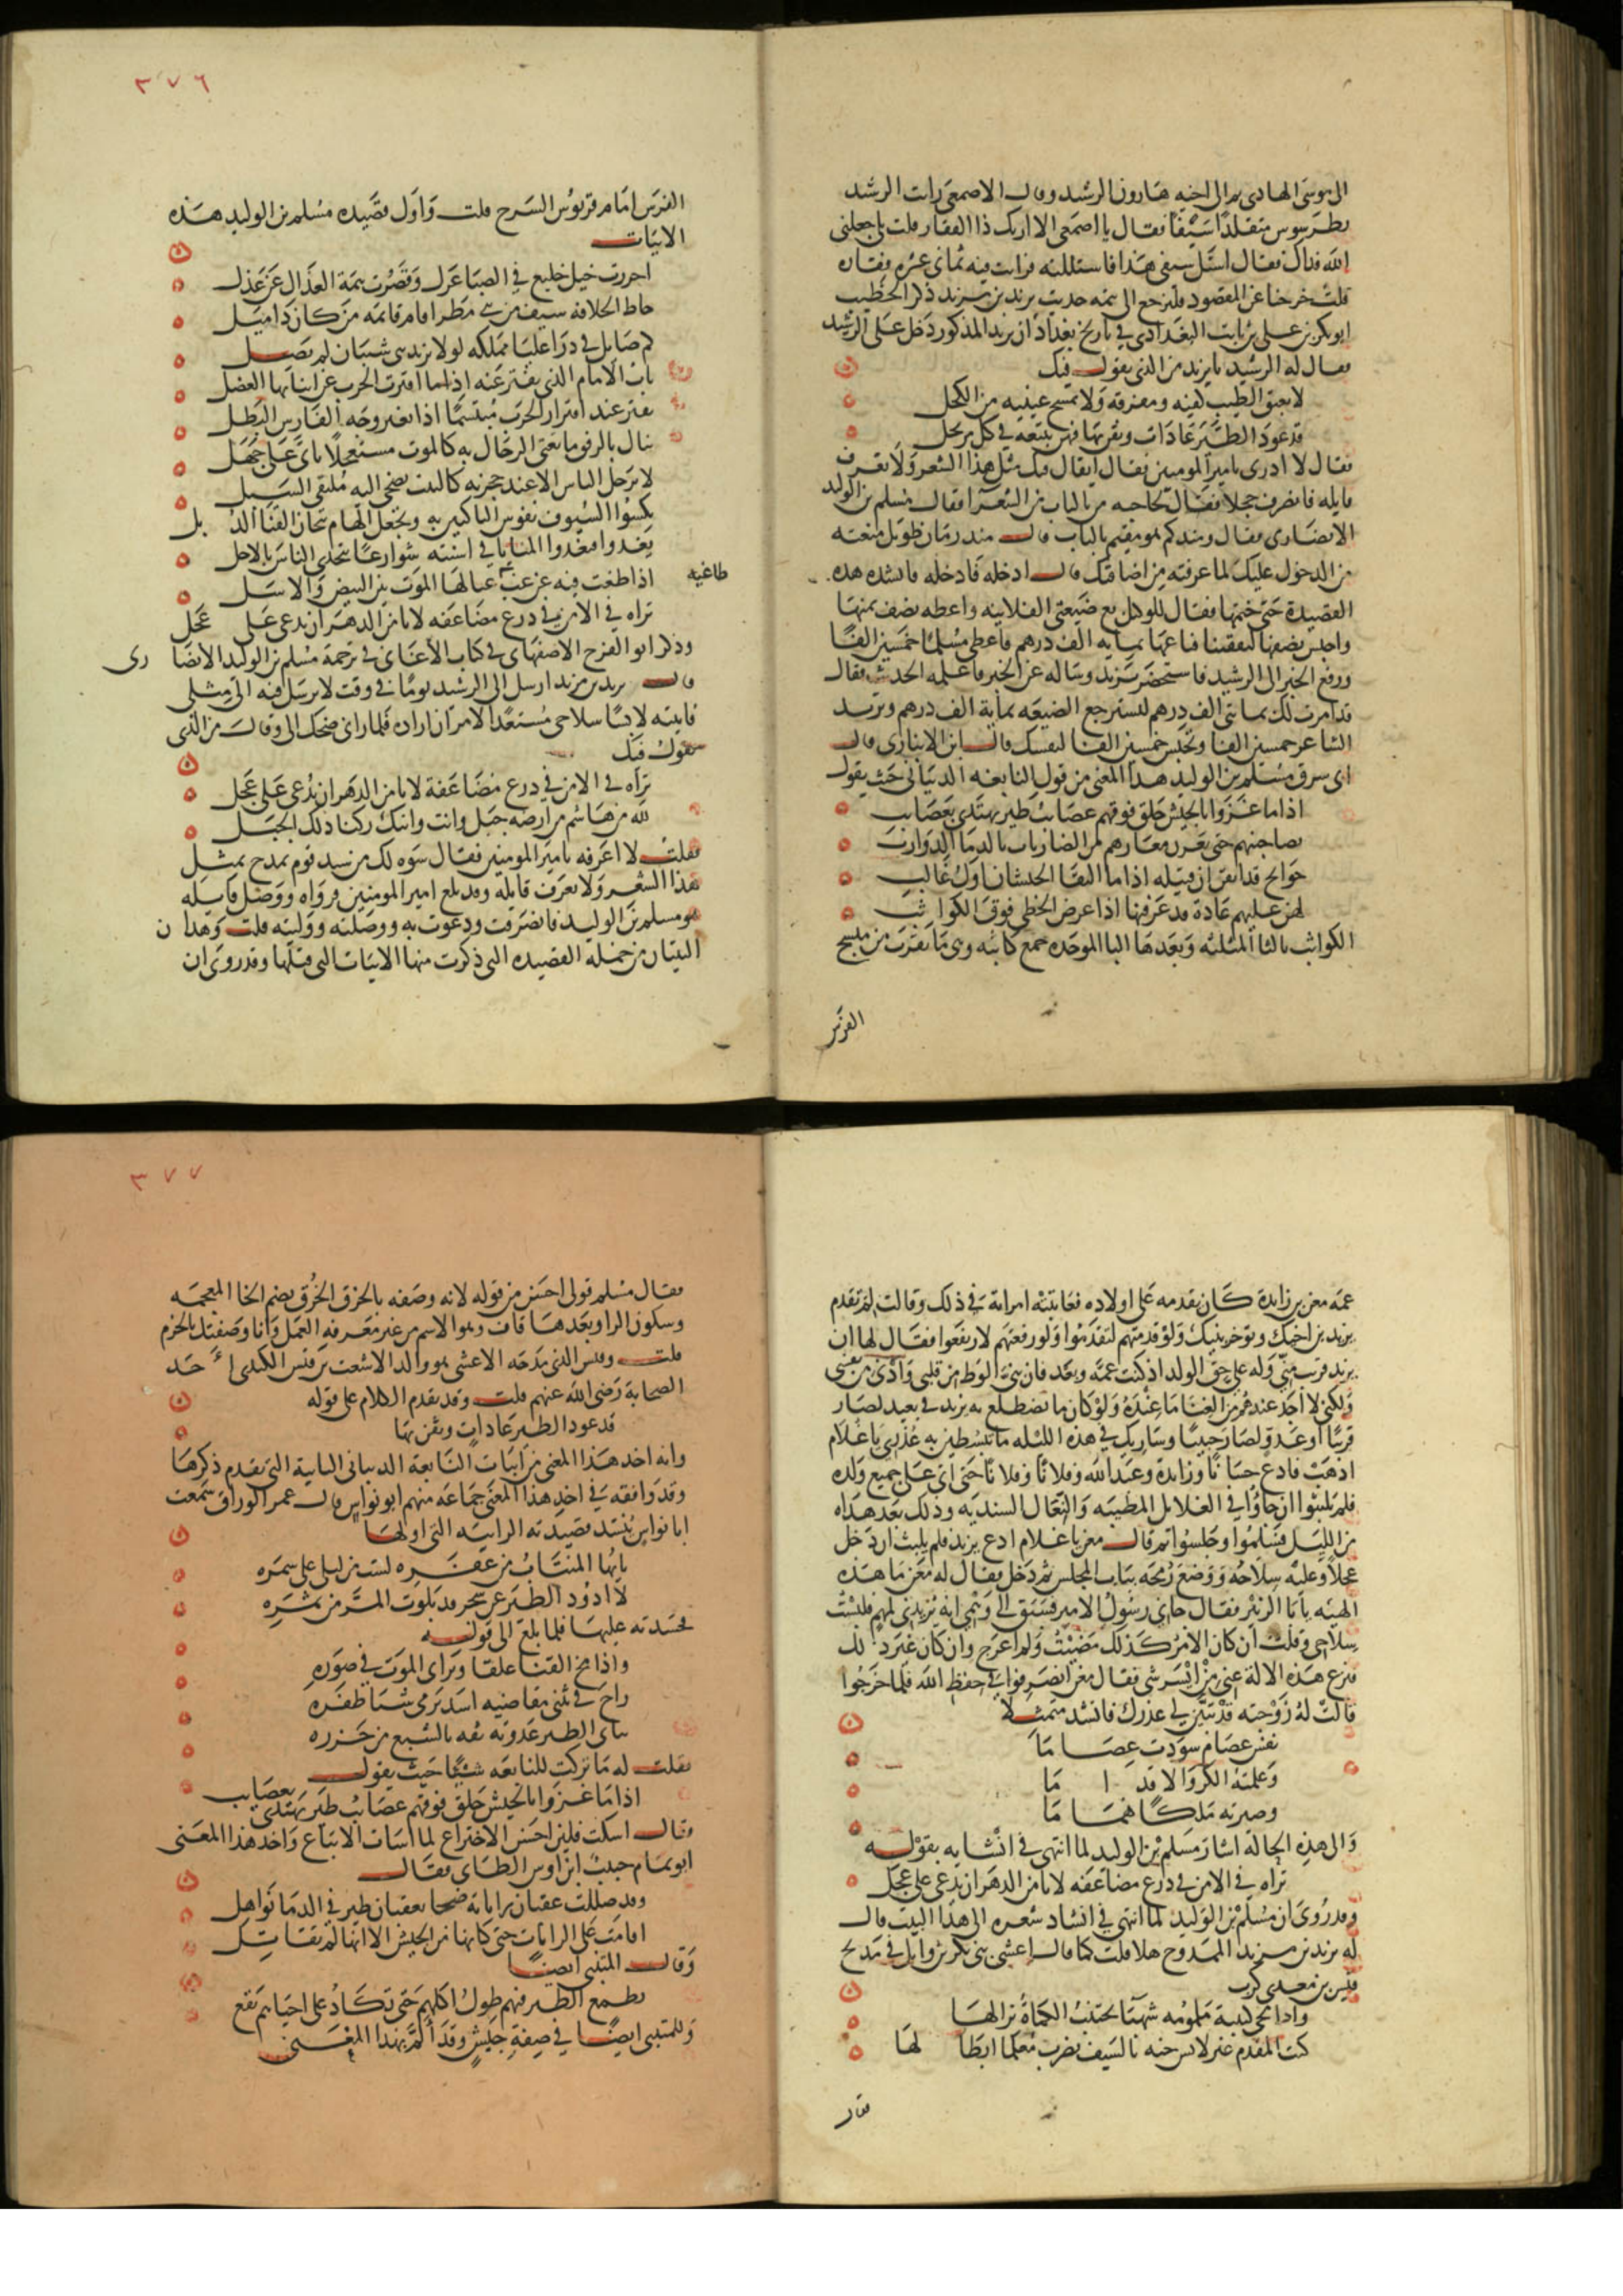 الى موسى الهادى ثم الى اخيه هارون الرشيد وقال الاصمعى رايت الرشيد
بطرسوس متقلدا سيفا فقال يا اصمعى الا اريك ذا الفقار قلت بلى جعلنى
الله فداك فقال استل سيفى هذا فاستللته فرايت فيه ثمانى عشره فقاره
قلت خرجنا عن المقصود فلنرجع الى تتمه حديث يزيد بن مزيد ذكر الخطيب
ابو بكر بن على بن ثابت البغدادى فى تاريخ بغداد ان يزيد المذكور دخل على الرشيد
فقال له الرشيد يا يزيد من الذى يقول فيك
لا يعبق الطيب كفيه ومفرقه ولا يمسح عينيه من الكحل
قد عود الطير عادات وثقن بها فهن يتبعنه فى كل مرتحل
فقال لا ادرى يا مير المومنين فقال ايقال فيك مثل هذا الشعر ولا تعرف
قايله فانصرف خجلا فقال لحاجبه من بالباب من الشعرا فقال مسلم بن الوليد
الانصارى فقال ومنذ كم هو مقيم بالباب قال منذ زمان طويل منعته
من الدخول عليك لما عرفته من اضاقتك قال ادخله فادخله فانشده هذه
القصيدة حتى ختمها فقال للوكيل بع ضيعتى الفلانيه واعطه نصف ثمنها
واحبس نصفها لنفقتنا فباعها بمايه الف درهم فاعطى مسلما خمسين الفا
ورفع الخبر الى الرشيد فاستحضر يزيد وساله عن الخبر فاعلمه الحديث فقال
قد امرت لك بمائتى الف درهم لتسترجع الضيعه بماية الف درهم وتزيد
الشاعر خمسين الفا وتحبس خمسين الفا لنفسك قال ابن الانبارى قال
ابى سرق مسلم بن الوليد هذا المعنى من قول النابغه الذبيانى حيث يقول
اذا ما غزوا بالجيش حلق فوقهم عصائب طير تهتدى بعصائب
يصاحبنهم حتى يغرن مغارهم من الضاريات بالدما الدوارب
جوانح قد ايقن ان قبيله اذا ما التقا الجيشان اول غالب
لهن عليهم عادة قد عرفنها اذا عرض الخطى فوق الكواثب
الكواثب بالثا المثلثه وبعدها البا الموحده جمع كاثبه وهى ما يقرب من منسج
الفرس
٣٧٦
الفرس امام قربوس السرج قلت واول قصيده مسلم بن الوليد هذه
الابيات
اجررت خيل خليع فى الصبا غزل وقصرت همة العذال عن عذل
حاط الخلافه سيف من بنى مطر اقام قائمه من كان ذا ميل
كم صايل فى ذرا عليا مملكه لولا يزيد بنى شيبان لم يصل
ناب الامام الذى يفتر عنه اذا ما افترت الحرب عن انيابها العضل
يفتر عند افترار الحرب مبتسما اذا تغير وجه الفارس البطل
ينال بالرفق ما تعيى الرجال به كالموت مستعجلا ياتى على مهل
لا يرحل الناس الا عند حجرته كالبيت يضحى اليه ملتقى السبل
يكسوا السيوف نفوس الناكثين به ويجعل الهام تيجان القنا الذبل
يغدوا فتغدوا المنايا فى اسنته شوارعا تتحدى الناس بالاجل
اذا طغت فيه عن غب عبا لها الموت بين البيض والاسل
طاغيه
تراه فى الامن فى درع مضاعفه لا يامن الدهر ان يدعى على عجل
وذكر ابو الفرج الاصفهانى فى كتاب الاغانى فى ترجمة مسلم بن الوليد الانصارى
قال يزيد بن مزيد ارسل الى الرشيد يوما فى وقت لا يرسل فيه الى مثلى
فاتيته لابسا سلاحى مستعدا لامر ان اراد فلما رانى ضحك الى وقال من الذى
يقول فيك
تراه فى الامن فى درع مضاعفة لا يامن الدهر ان يدعى على عجل
لله من هاشم فى ارضه جبل وانت وابنك ركنا ذلك الجبل
فقلت لا اعرفه يا مير المومنين فقال سوه لك من سيد قوم يمدح بمثل
هذا الشعر ولا يعرف قايله وقد بلغ امير المومنين فرواه ووصل قايله
هو مسلم بن الوليد فانصرفت ودعوت به ووصلته ووليته قلت وهذان
البيتان من جملة القصيده التى ذكرت منها الابيات التى قبلها وقد روى ان
عمه معن بن زايدة كان يقدمه على اولاده فعاتبته امراته فى ذلك وقالت لم تقدم
يزيد بن اخيك وتوخر بنيك ولو قدمتهم لتقدموا ولو رفعتهم لارتفعوا فقال لها ان
يزيد قريب منى وله على حق الولد اذ كنت عمه وبعد فان بنى الوط من قلبى وادنى من نفسى
ولكنى لا اجد عندهم من الغنا ما عنده ولو كان ما تضطلع به يزيد فى بعيد لصار
قريبا او عدو لصار حبيبا وساريك فى هذه الليله ما تبسطين به عذرى يا غلام
اذهب فادع جسانا وزايدة وعبد الله وفلانا وفلانا حتى اتى على جميع ولده
فلم يلبثوا ان جاؤا فى الغلايل المطيبه والنعال السنديه وذلك بعد هداه
من الليل فسلموا وجلسوا ثم قال معن يا غلام ادع يزيد فلم يلبث ان دخل
عجلا وعليه سلاحه ووضع رمحه بباب المجلس ثم دخل فقال له معن ما هذه
الهيئه يا ابا الزبير فقال جانى رسول الامير فسبق الى وهمى انه يريدنى لمهم فلبست
سلاحى وقلت ان كان الامر كذلك مضيت ولم اعرج وان كان غير ذلك
فنزع هذه الالة عنى من ايسر شى فقال معن انصرفوا فى حفظ الله فلما خرجوا
قالت له زوجته قد تبين لى عذرك فانشد متمثلا
نفس عصام سودت عصاما
وعلمته الكر والاقداما
وصيرته ملكا هماما
والى هذه الحالة اشار مسلم بن الوليد لما انتهى فى انشايه بقوله
تراه فى الامن فى درع مضاعفه لا يامن الدهر ان يدعى على عجل
وقد روى ان مسلم بن الوليد لما انتهى فى انشاد شعره الى هذا البيت قال
له يزيد بن مزيد الممدوح هلا قلت كما قال اعشى بنى بكر بن وايل فى مديح
قيس بن معدى كرب
واذا تجى كتيبة ملمومه شهبا تجتنب الكماة نزالها
كنت المقدم غير لابس جنه بالسيف تضرب معلما ابطالها
فقال
٣٧٧
فقال مسلم قولى احسن من قوله لانه وصفه بالخرق الخرق بضم الخا المعجمه
وسكون الرا وبعدها قاف وهو الاسم من غير معرفه العمل وانا وصفتك بالحزم
قلت وقيس الذى مدحه الاعشى هو والد الاشعث بن قيس الكندى احد
الصحابة رضى الله عنهم قلت وقد تقدم الكلام على قوله
قد عود الطير عادات وثقن بها
وانه اخذ هذا المعنى من ابيات النابغة الذبيانى البايية التى تقدم ذكرها
وقد وافقه فى اخذ هذا المعنى جماعه منهم ابو نواس قال عمر الوراق سمعت
ابا نواس ينشد قصيدته الراييه التى اولها
يايها المنتاب من عفره لست من ليلى على سمره
لا اذود الطير عن شجر قد بلوت المر من ثمره
فحسدته عليها فلما بلغ الى قوله
واذا مج القنا علقا وتراى الموت فى صوره
راح فى ثنى مفاضيه اسد يدمى شبا ظفره
تتاى الطير غدوته ثقه بالشبع من جزره
فقلت له ما تركت للنابغه شيئا حيث يقول
اذا ما غزوا بالجيش حلق فوقهم عصائب طير تهتدى بعصايب
فقال اسكت فلين احسن الاختراع لما اسات الاتباع واخذ هذا المعنى
ابو تمام حبيب ابن اوس الطاى فقال
وقد ظللت عقبان راياته ضحا بعقبان طير فى الدما نواهل
اقامت على الرايات حتى كانها من الجيش الا انها لم تقاتل
وقال المتنبى ايضا
يطمع الطير فيهم طول اكلهم حتى تكاد على احيايهم تقع
وللمتنبى ايضا فى صفة جيش وقد الم بهذا المعنى